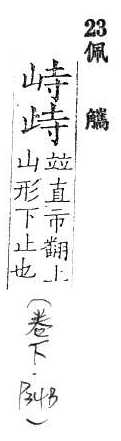 23
佩觿
峙歭
竝直市翻上
山形下止也
(卷下·P34B)